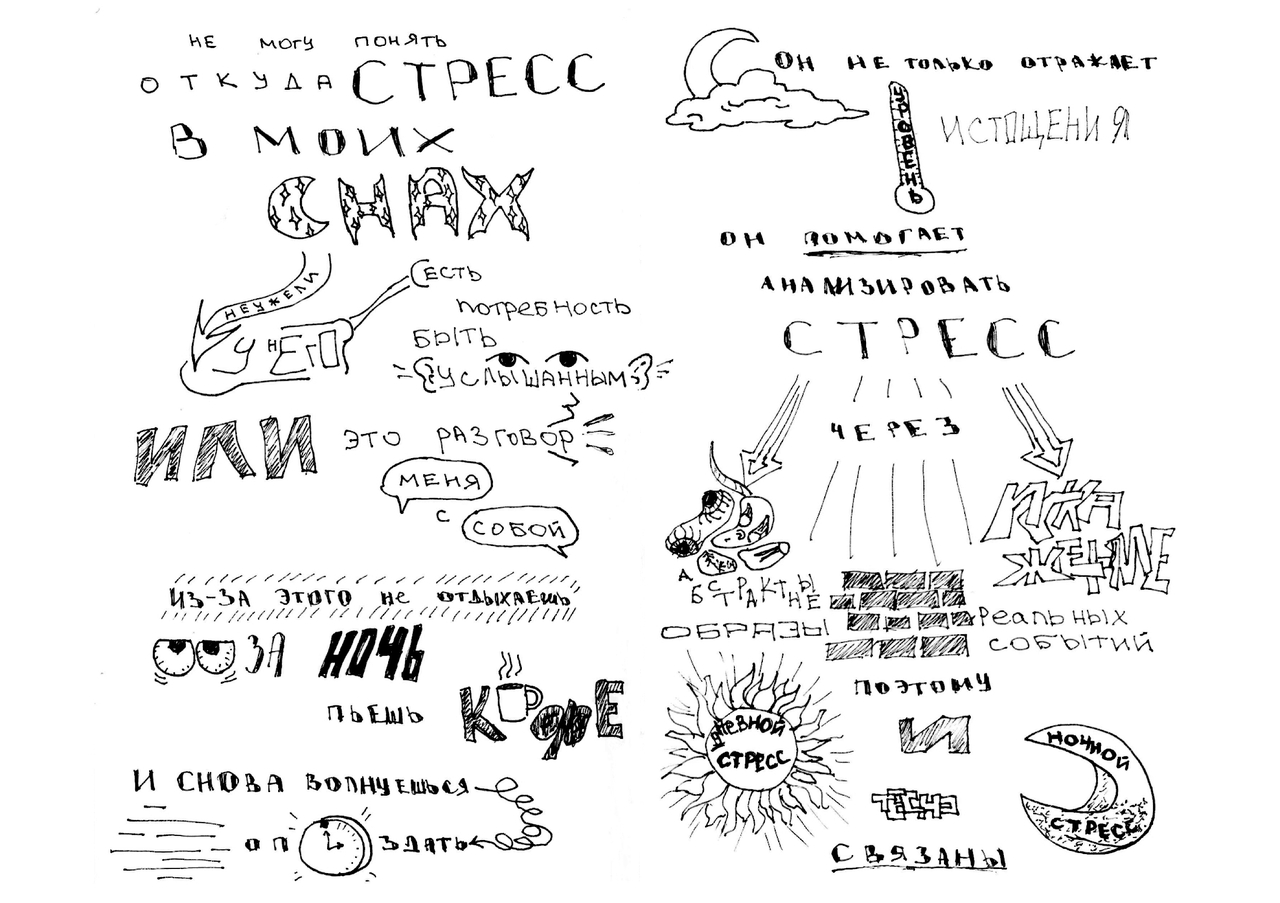 НЕ МОГУ ПОНЯТЬ
ОТКУДА СТРЕСС
В МОИХ
СНАХ
НЕУЖЕЛИ
У НЕГО
ЕСТЬ
ПОТРЕБНОСТЬ
БЫТЬ
УСЛЫШАННЫМ
ИЛИ ЭТО РАЗГОВОР
МЕНЯ
С СОБОЙ
ИЗ-ЗА ЭТОГО НЕ ОТДЫХАЕШЬ
ЗА НОЧЬ
ПЬЕШЬ КОФЕ
И СНОВА ВОЛНУЕШЬСЯ
ОПОЗДАТЬ
ОН НЕ ТОЛЬКО ОТРАЖАЕТ
УРОВЕНЬ
ИСТОЩЕНИЯ
ОН ПОМОГАЕТ
АНАЛИЗИРОВАТЬ
СТРЕСС
ЧЕРЕЗ
АБСТРАКТНЫЕ
ОБРАЗЫ
ИСКАЖЕНИЕ
РЕАЛЬНЫХ
СОБЫТИЙ
ПОЭТОМУ
ДНЕВНОЙ
СТРЕСС
И
НОЧНОЙ
СТРЕСС
ТЕСНО
СВЯЗАНЫ